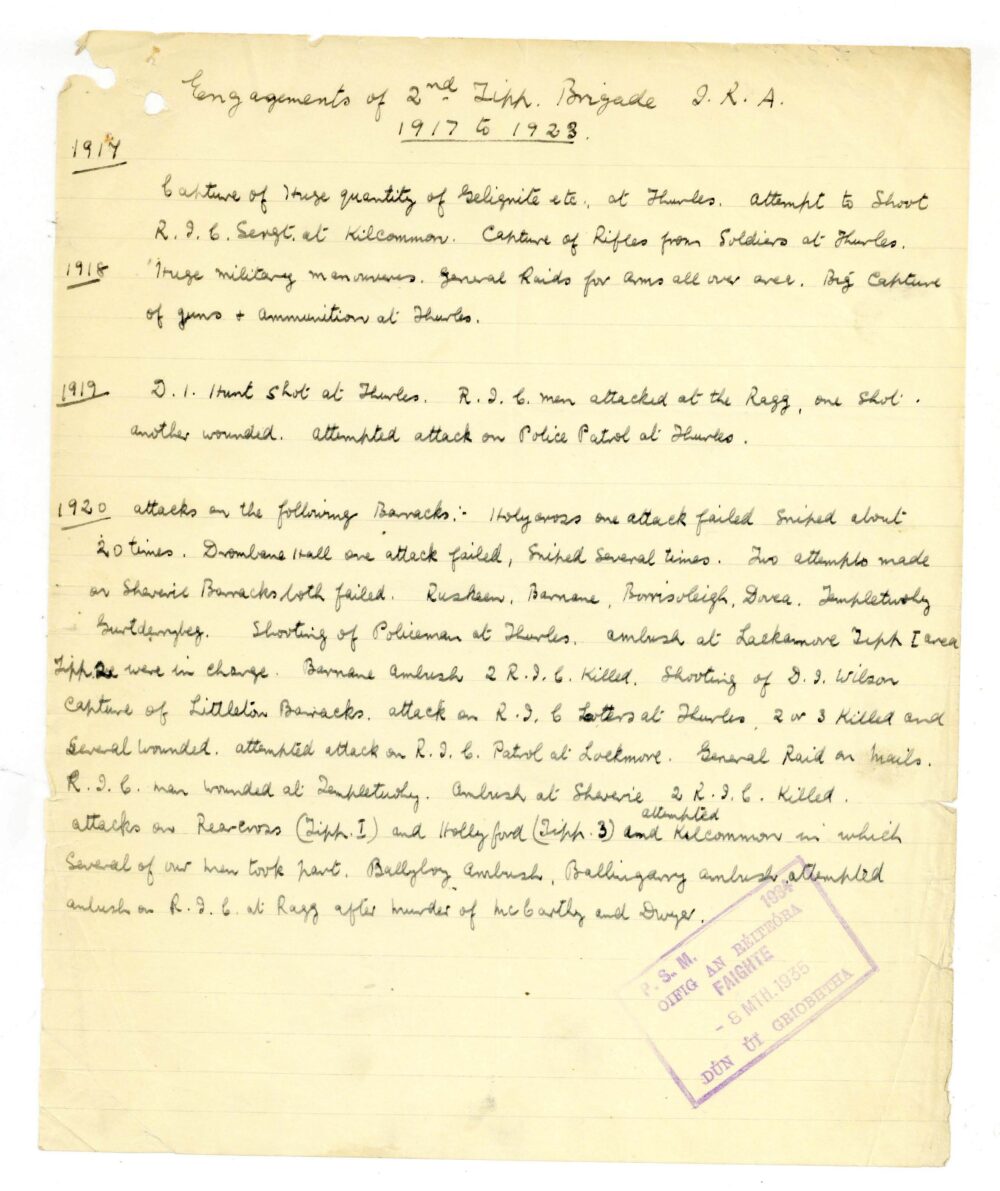 Engagements of 2nd Tipp. Brigade I. R. A.
1917 to 1923.
1917
Capture of Huge quantity of Gelignite etc., at Thurles. Attempt to Shoot
R. I. C. Sergt. at Kilcommon. Capture of Rifles from Soldiers at Thurles.
1918 Huge military manouveres. General Raids for Arms all over area. Big Capture
of guns + Ammunition at Thurles.
1919 D. I. Hunt Shot at Thurles. R. I. C. men attacked at the Ragg, one Shot.
another wounded. Attempted attack on Police Patrol at Thurles.
1920 attacks on the following Barracks:- Holycross one attack failed Sniped about
20 times. Drombane Hall one attack failed, Sniped Several times. Two attempts made
on Sheverie Barracks both failed. Ruskeen, Barnane, Borrisoleigh, Dovea. Templetuohy
Gurtderrybeg. Shooting of Policeman at Thurles. Ambush at Lackamore Tipp I area
Tipp. 2 were in charge. Barnane Ambush 2 R. I. C. Killed. Shooting of D. I. Wilson
Capture of Littleton Barracks. attack on R. I. C at Thurles 2 or 3 Killed and
Several wounded. attempted attack on R. I. C. Patrol at Lockmore. General Raid on Mails.
R. I. C. man wounded at Templetuohy. Ambush at Sheverie 2 R. I. C. Killed.
attacks on Rearcross (Tipp. I) and Hollyford (Tipp. 3) and attempted Kilcommon in which
Several of our men took part. Ballyboy Ambush, Ballingarry ambush, attempted
ambush on R. I. C. at Ragg after Murder of McCarthy and Dwyer.
P. S. M. 1934
OIFIG AN RÉITEÓRA
FAIGHTE
- 8 MTH. 1935
DÚN ÚÍ GRIOBHTHA